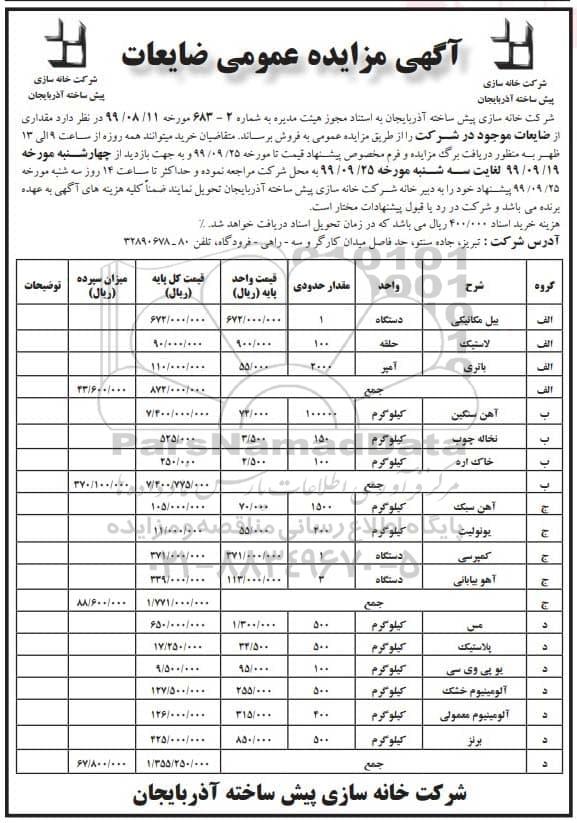 آگهی مزایده عمومی ضایعات
شرکت خانه سازی
پیش ساخته آذربایجان
شرکت خانه سازی
پیش ساخته آذربایجان
شرکت خانه سازی پیش ساخته آذربایجان به استناد مجوز هیئت مدیره به شماره ۲ - ۶۸۳ مورخه ۱۱/ ۰۸/ ۹۹ در نظر دارد مقداری
از ضایعات موجود در شرکت را از طریق مزایده عمومی به فروش برساند. متقاضیان خرید میتوانند همه روزه از ساعت ۹ الی ۱۳
ظهر به منظور دریافت برگ مزایده و فرم مخصوص پیشنهاد قیمت تا مورخه ۲۵/ ۰۹/ ۹۹ و به جهت بازدید از چهارشنبه مورخه
۱۹/ ۰۹/ ۹۹ لغایت سه شنبه مورخه ۲۵/ ۰۹/ ۹۹ به محل شرکت مراجعه نموده و حداکثر تا ساعت ۱۴ روز سه شنبه مورخه
۲۵/ ۰۹/ ۹۹ پیشنهاد خود را به دبیر خانه شرکت خانه سازی پیش ساخته آذربایجان تحویل نمایند ضمناً کلیه هزینه های آگهی به عهده
برنده می باشد و شرکت در رد یا قبول پیشنهادات مختار است.
هزینه خرید اسناد ۴۰۰/۰۰۰ ریال می باشد که در زمان تحویل اسناد دریافت خواهد شد. ٪
آدرس شرکت : تبریز، جاده سنتو، حد فاصل میدان کارگر و سه - راهی - فرودگاه، تلفن ۸۰ ـ ۳۲۸۹۰۶۷۸
گروه شرح واحد مقدار حدودی قیمت واحد پایه (ریال) قیمت کل پایه (ریال) میزان سپرده (ریال) توضیحات
الف بیل مکانیکی دستگاه ۱ ۶۷۲/۰۰۰/۰۰۰ ۶۷۲/۰۰۰/۰۰۰
الف لاستیک حلقه ۱۰۰ ۹۰۰/۰۰۰ ۹۰/۰۰۰/۰۰۰
الف باتری آمپر ۲۰۰۰ ۵۵/۰۰۰ ۱۱۰/۰۰۰/۰۰۰
الف جمع ۸۷۲/۰۰۰/۰۰۰ ۴۳/۶۰۰/۰۰۰
ب آهن سنگین کیلوگرم ۱۰۰۰۰۰ ۷۴/۰۰۰ ۷/۴۰۰/۰۰۰/۰۰۰
ب نخاله چوب کیلوگرم ۱۵۰ ۳/۵۰۰ ۵۲۵/۰۰۰
ب خاک اره کیلوگرم ۱۰۰ ۲/۵۰۰ ۲۵۰/۰۰۰
ب جمع ۷/۴۰۰/۷۷۵/۰۰۰ ۳۷۰/۱۰۰/۰۰۰
ج آهن سبک کیلوگرم ۱۵۰۰ ۷۰/۰۰۰ ۱۰۵/۰۰۰/۰۰۰
ج یونولیت کیلوگرم ۲۰۰ ۵۵/۰۰۰ ۱۱/۰۰۰/۰۰۰
ج کمپرسی دستگاه ۱ ۳۷۱/۰۰۰/۰۰۰ ۳۷۱/۰۰۰/۰۰۰
ج آهو بیابانی دستگاه ۳ ۱۱۳/۰۰۰/۰۰۰ ۳۳۹/۰۰۰/۰۰۰
ج جمع ۱/۷۷۱/۰۰۰/۰۰۰ ۸۸/۶۰۰/۰۰۰
د مس کیلوگرم ۵۰۰ ۱/۳۰۰/۰۰۰ ۶۵۰/۰۰۰/۰۰۰
د پلاستیک کیلوگرم ۵۰۰ ۳۴/۵۰۰ ۱۷/۲۵۰/۰۰۰
د یو پی وی سی کیلوگرم ۱۰۰ ۹۵/۰۰۰ ۹/۵۰۰/۰۰۰
د آلومینیوم خشک کیلوگرم ۵۰۰ ۲۵۵/۰۰۰ ۱۲۷/۵۰۰/۰۰۰
د آلومینیوم معمولی کیلوگرم ۴۰۰ ۳۱۵/۰۰۰ ۱۲۶/۰۰۰/۰۰۰
د برنز کیلوگرم ۵۰۰ ۸۵۰/۰۰۰ ۴۲۵/۰۰۰/۰۰۰
د جمع ۱/۳۵۵/۲۵۰/۰۰۰ ۶۷/۸۰۰/۰۰۰
ParsNamadData
مرکز فرآوری اطلاعات پارس نماد داده ها
پایگاه اطلاع رسانی مناقصه و مزایده
۰۲۱-۸۸۳۴۹۶۷۰-۵
شرکت خانه سازی پیش ساخته آذربایجان